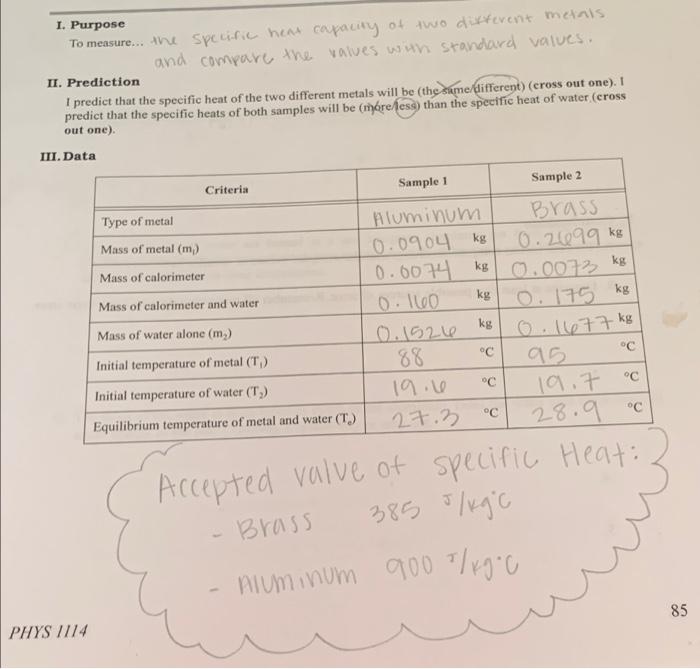 I. Purpose
To measure... the specific heat capacity of two different metals
and compare the values with standard values.
II. Prediction
I predict that the specific heat of the two different metals will be (the same/different) (cross out one). I
predict that the specific heats of both samples will be (more/less) than the specific heat of water (cross
out one).
III. Data
Criteria Sample 1 Sample 2
Type of metal Aluminum Brass
Mass of metal (m₁) 0.0904 kg 0.2699 kg
Mass of calorimeter 0.0074 kg 0.0073 kg
Mass of calorimeter and water 0.160 kg 0.175 kg
Mass of water alone (m₂) 0.1526 kg 0.1677 kg
Initial temperature of metal (T₁) 88 °C 95 °C
Initial temperature of water (T₂) 19.6 °C 19.7 °C
Equilibrium temperature of metal and water (Tₑ) 27.3 °C 28.9 °C
Accepted value of specific Heat:
- Brass 385 J/kg°C
- Aluminum 900 J/kg·C
85
PHYS 1114